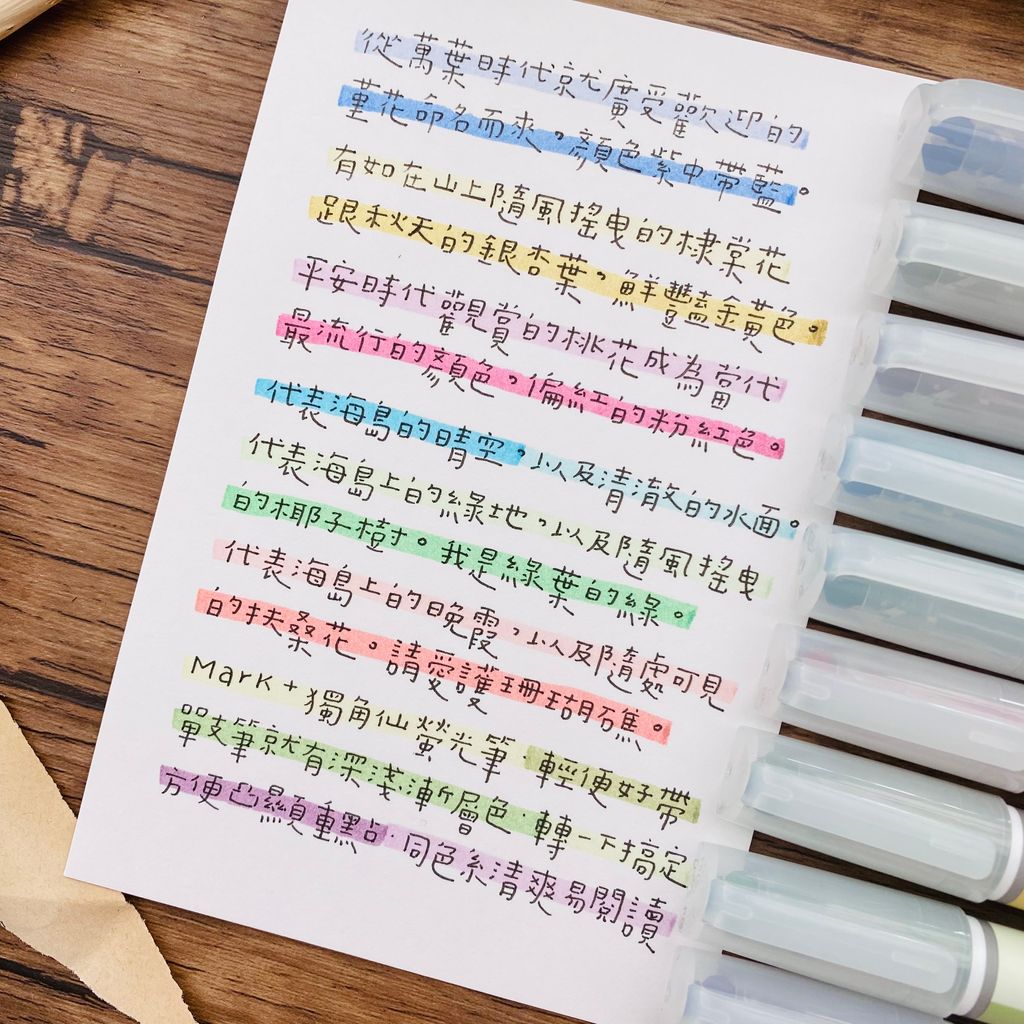 從萬葉時代就廣受歡迎的
菫花命名而來，顏色紫中帶藍。
有如在山上隨風搖曳的棣棠花
跟秋天的銀杏葉，鮮豔金黃色。
平安時代觀賞的桃花成為當代
最流行的顏色，偏紅的粉紅色。
代表海島的晴空，以及清澈的水面。
代表海島上的綠地，以及隨風搖曳
的椰子樹。我是綠葉的綠。
代表海島上的晚霞，以及隨處可見
的扶桑花。請愛護珊瑚礁。
Mark+獨角仙螢光筆·輕便好帶
單支筆就有深淺漸層色·轉一下搞定
方便凸顯重點·同色系清爽易閱讀